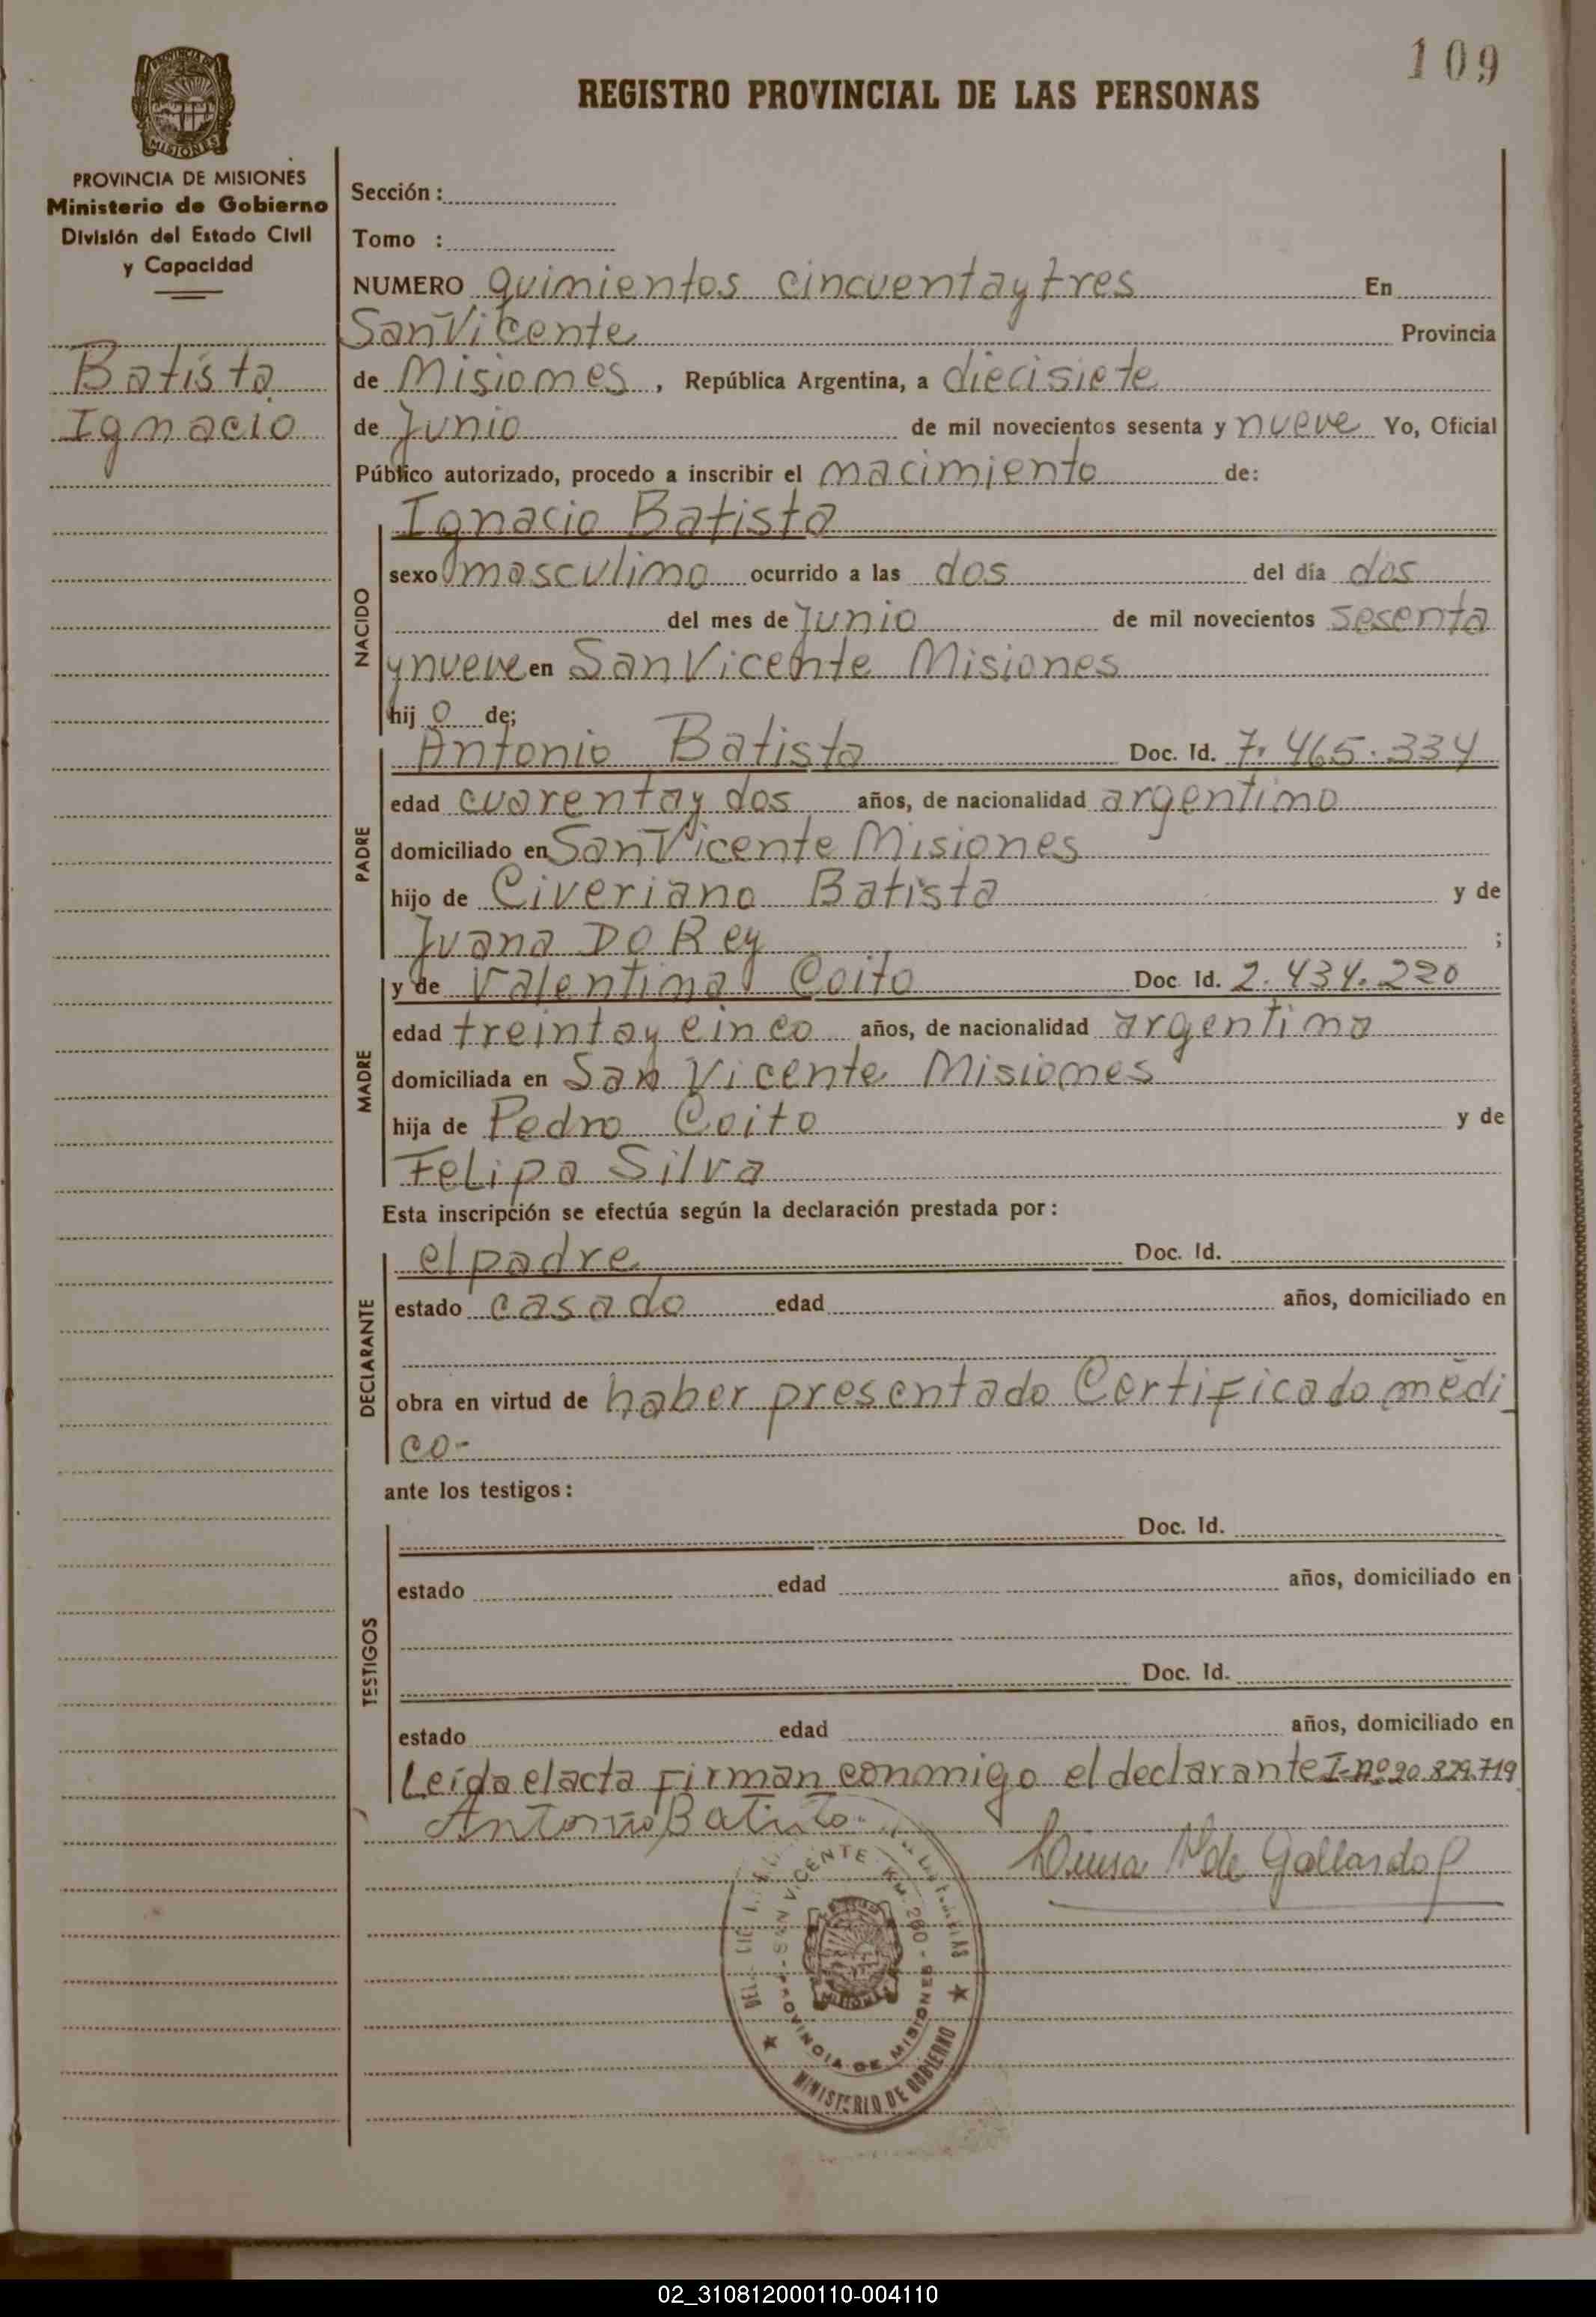 109
REGISTRO PROVINCIAL DE LAS PERSONAS
PROVINCIA DE MISIONES
Ministerio de Gobierno
División del Estado Civil
y Capacidad
Batista
Ignacio
Sección :
Tomo :
NUMERO quimientos cincuenta y tres En
San Vicente Provincia
de Misiomes , República Argentina, a diecisiete
de Junio de mil novecientos sesenta y nueve Yo, Oficial
Público autorizado, procedo a inscribir el macimiento de:
Ignacio Batista
NACIDO
sexo masculimo ocurrido a las dos del día dos
del mes de Junio de mil novecientos sesenta
y nueve en San Vicente Misiones
hij o de;
PADRE
Antonio Batista Doc. Id. 7.465.334
edad cuarenta y dos años, de nacionalidad argentimo
domiciliado en San Vicente Misiones
hijo de Civeriano Batista y de
Juana Do Rey ;
MADRE
y de Valentima Coito Doc. Id. 2.434.220
edad treinta y cinco años, de nacionalidad argentima
domiciliada en San Vicente Misiomes
hija de Pedro Coito y de
Felipa Silva
Esta inscripción se efectúa según la declaración prestada por :
DECLARANTE
el padre Doc. Id.
estado casado edad años, domiciliado en
obra en virtud de haber presentado Certificado médi
co-
ante los testigos :
TESTIGOS
Doc. Id.
estado edad años, domiciliado en
Doc. Id.
estado edad años, domiciliado en
Leída el acta firman conmigo el declarante I-nº 20.829.719
Antonio Batista
de Gallardo
SAN VICENTE KM. 260 - PROVINCIA DE MISIONES
MISIONES
MINISTERIO DE GOBIERNO
02_310812000110-004110